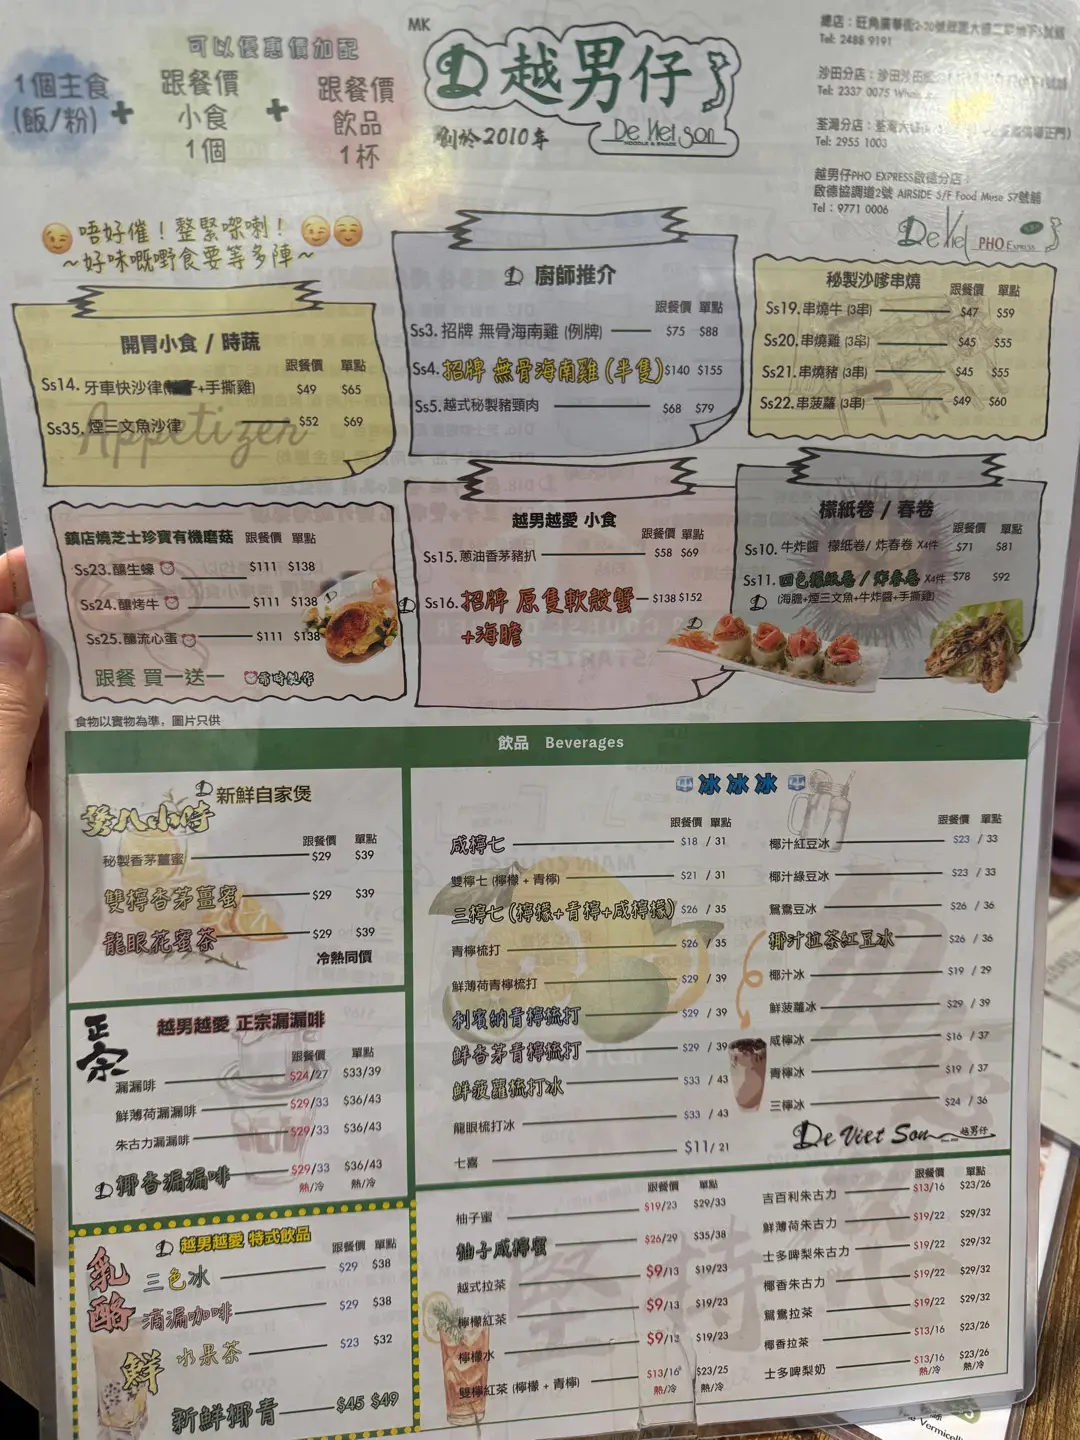 可以優惠價加配
1個主食
(飯/粉)
+
跟餐價
小食
1個
+
跟餐價
飲品
1杯
MK
越男仔
創於2010年
De Viet Son
NOODLE & SNACK
Tel: 2488 9191
Tel: 2337 0075
Tel: 2955 1003
越男仔PHO EXPRESS啟德分店：
啟德協調道2號 AIRSIDE 5/F Food Muse S7號舖
Tel：9771 0006
De Viet PHO Express
唔好催！整緊㗎喇！
~好味嘅嘢食要等多陣~
開胃小食 / 時蔬
Appetizer
跟餐價 單點
Ss14. 牙車快沙律( +手撕雞) $49 $65
Ss35. 煙三文魚沙律 $52 $69
廚師推介
跟餐價 單點
Ss3. 招牌 無骨海南雞 (例牌) $75 $88
Ss4. 招牌 無骨海南雞 (半隻) $140 $155
Ss5. 越式秘製豬頸肉 $68 $79
秘製沙嗲串燒
跟餐價 單點
Ss19. 串燒牛 (3串) $47 $59
Ss20. 串燒雞 (3串) $45 $55
Ss21. 串燒豬 (3串) $45 $55
Ss22. 串菠蘿 (3串) $49 $60
鎮店燒芝士珍寶有機蘑菇 跟餐價 單點
Ss23. 釀生蠔 $111 $138
Ss24. 釀烤牛 $111 $138
Ss25. 釀流心蛋 $111 $138
跟餐 買一送一
需時製作
越男越愛 小食
跟餐價 單點
Ss15. 蔥油香茅豬扒 $58 $69
Ss16. 招牌 原隻軟殼蟹 $138 $152
+海膽
檬紙卷 / 春卷
跟餐價 單點
Ss10. 牛炸醬 檬紙卷/ 炸春卷 X4件 $71 $81
Ss11. 四色檬紙卷 / 炸春卷 X4件 $78 $92
(海膽+煙三文魚+牛炸醬+手撕雞)
食物以實物為準，圖片只供
飲品 Beverages
新鮮自家煲
煲八小時
跟餐價 單點
秘製香茅薑蜜 $29 $39
雙檸香茅薑蜜 $29 $39
龍眼花蜜茶 $29 $39
冷熱同價
正宗
越男越愛 正宗漏漏啡
跟餐價 單點
漏漏啡 $24/27 $33/39
鮮薄荷漏漏啡 $29/33 $36/43
朱古力漏漏啡 $29/33 $36/43
椰香漏漏啡 $29/33 $36/43
熱/冷 熱/冷
越男越愛 特式飲品
跟餐價 單點
乳酪
三色冰 $29 $38
滴漏咖啡 $29 $38
鮮
水果茶 $23 $32
新鮮椰青 $45 $49
冰冰冰
跟餐價 單點
咸檸七 $18 / 31
雙檸七 (檸檬 + 青檸) $21 / 31
三檸七 (檸檬+青檸+咸檸檬) $26 / 35
青檸梳打 $26 / 35
鮮薄荷青檸梳打 $29 / 39
利賓納青檸梳打 $29 / 39
鮮香茅青檸梳打 $29 / 39
鮮菠蘿梳打冰 $33 / 43
龍眼梳打冰 $33 / 43
七喜 $11/ 21
跟餐價 單點
椰汁紅豆冰 $23 / 33
椰汁綠豆冰 $23 / 33
鴛鴦豆冰 $26 / 36
椰汁拉茶紅豆冰 $26 / 36
椰汁冰 $19 / 29
鮮菠蘿冰 $29 / 39
咸檸冰 $16 / 37
青檸冰 $19 / 37
三檸冰 $24 / 36
De Viet Son 越男仔
跟餐價 單點
柚子蜜 $19/23 $29/33
柚子咸檸蜜 $26/29 $35/38
越式拉茶 $9/13 $19/23
檸檬紅茶 $9/13 $19/23
檸檬水 $9/13 $19/23
雙檸紅茶 (檸檬 + 青檸) $13/16 $23/25
熱/冷 熱/冷
跟餐價 單點
吉百利朱古力 $13/16 $23/26
鮮薄荷朱古力 $19/22 $29/32
士多啤梨朱古力 $19/22 $29/32
椰香朱古力 $19/22 $29/32
鴛鴦拉茶 $19/22 $29/32
椰香拉茶 $13/16 $23/26
士多啤梨奶 $13/16 $23/26
熱/冷 熱/冷